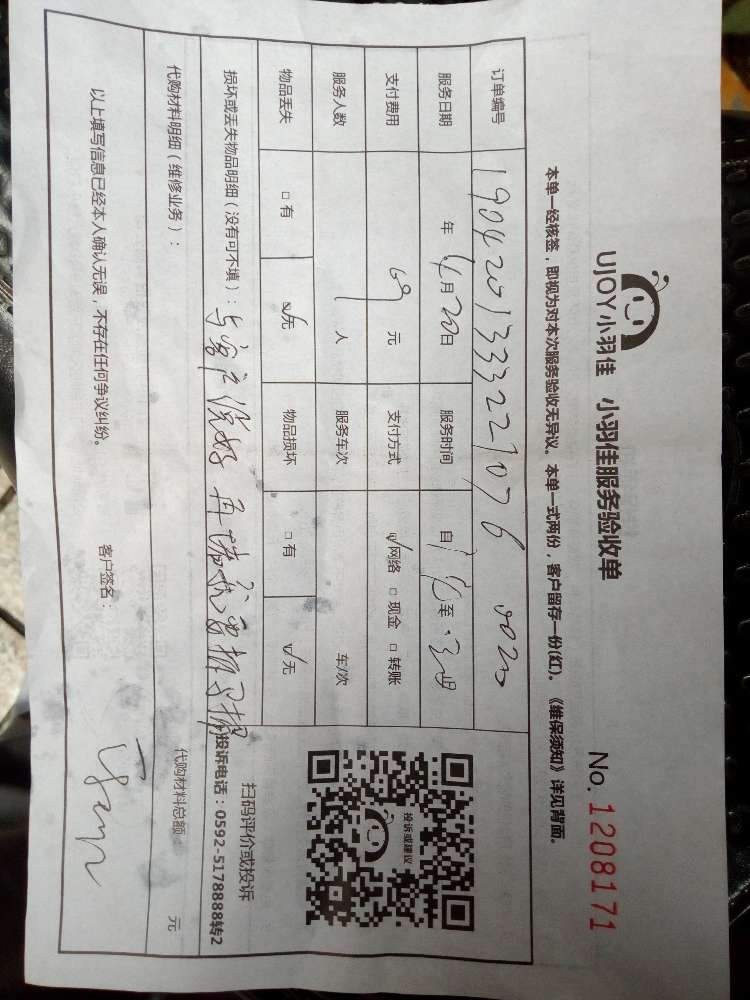 UJOY小羽佳 小羽佳服务验收单
No. 1208171
本单一经核签，即视为对本次服务验收无异议。本单一式两份，客户留存一份(红)。《维保须知》详见背面。
订单编号
服务日期 年 4月20日 服务时间 自 至
支付费用 69 元 支付方式 ☑网络 □现金 □转账
服务人数 1 人 服务车次 车/次
物品丢失 □有 ☑无 物品损坏 □有 ☑无
投诉或建议
扫码评价或投诉
投诉电话：0592-5178888转2
损坏或丢失物品明细（没有可不填）：与客户
代购材料明细（维修业务）： 代购材料总额 元
以上填写信息已经本人确认无误，不存在任何争议纠纷。 客户签名：